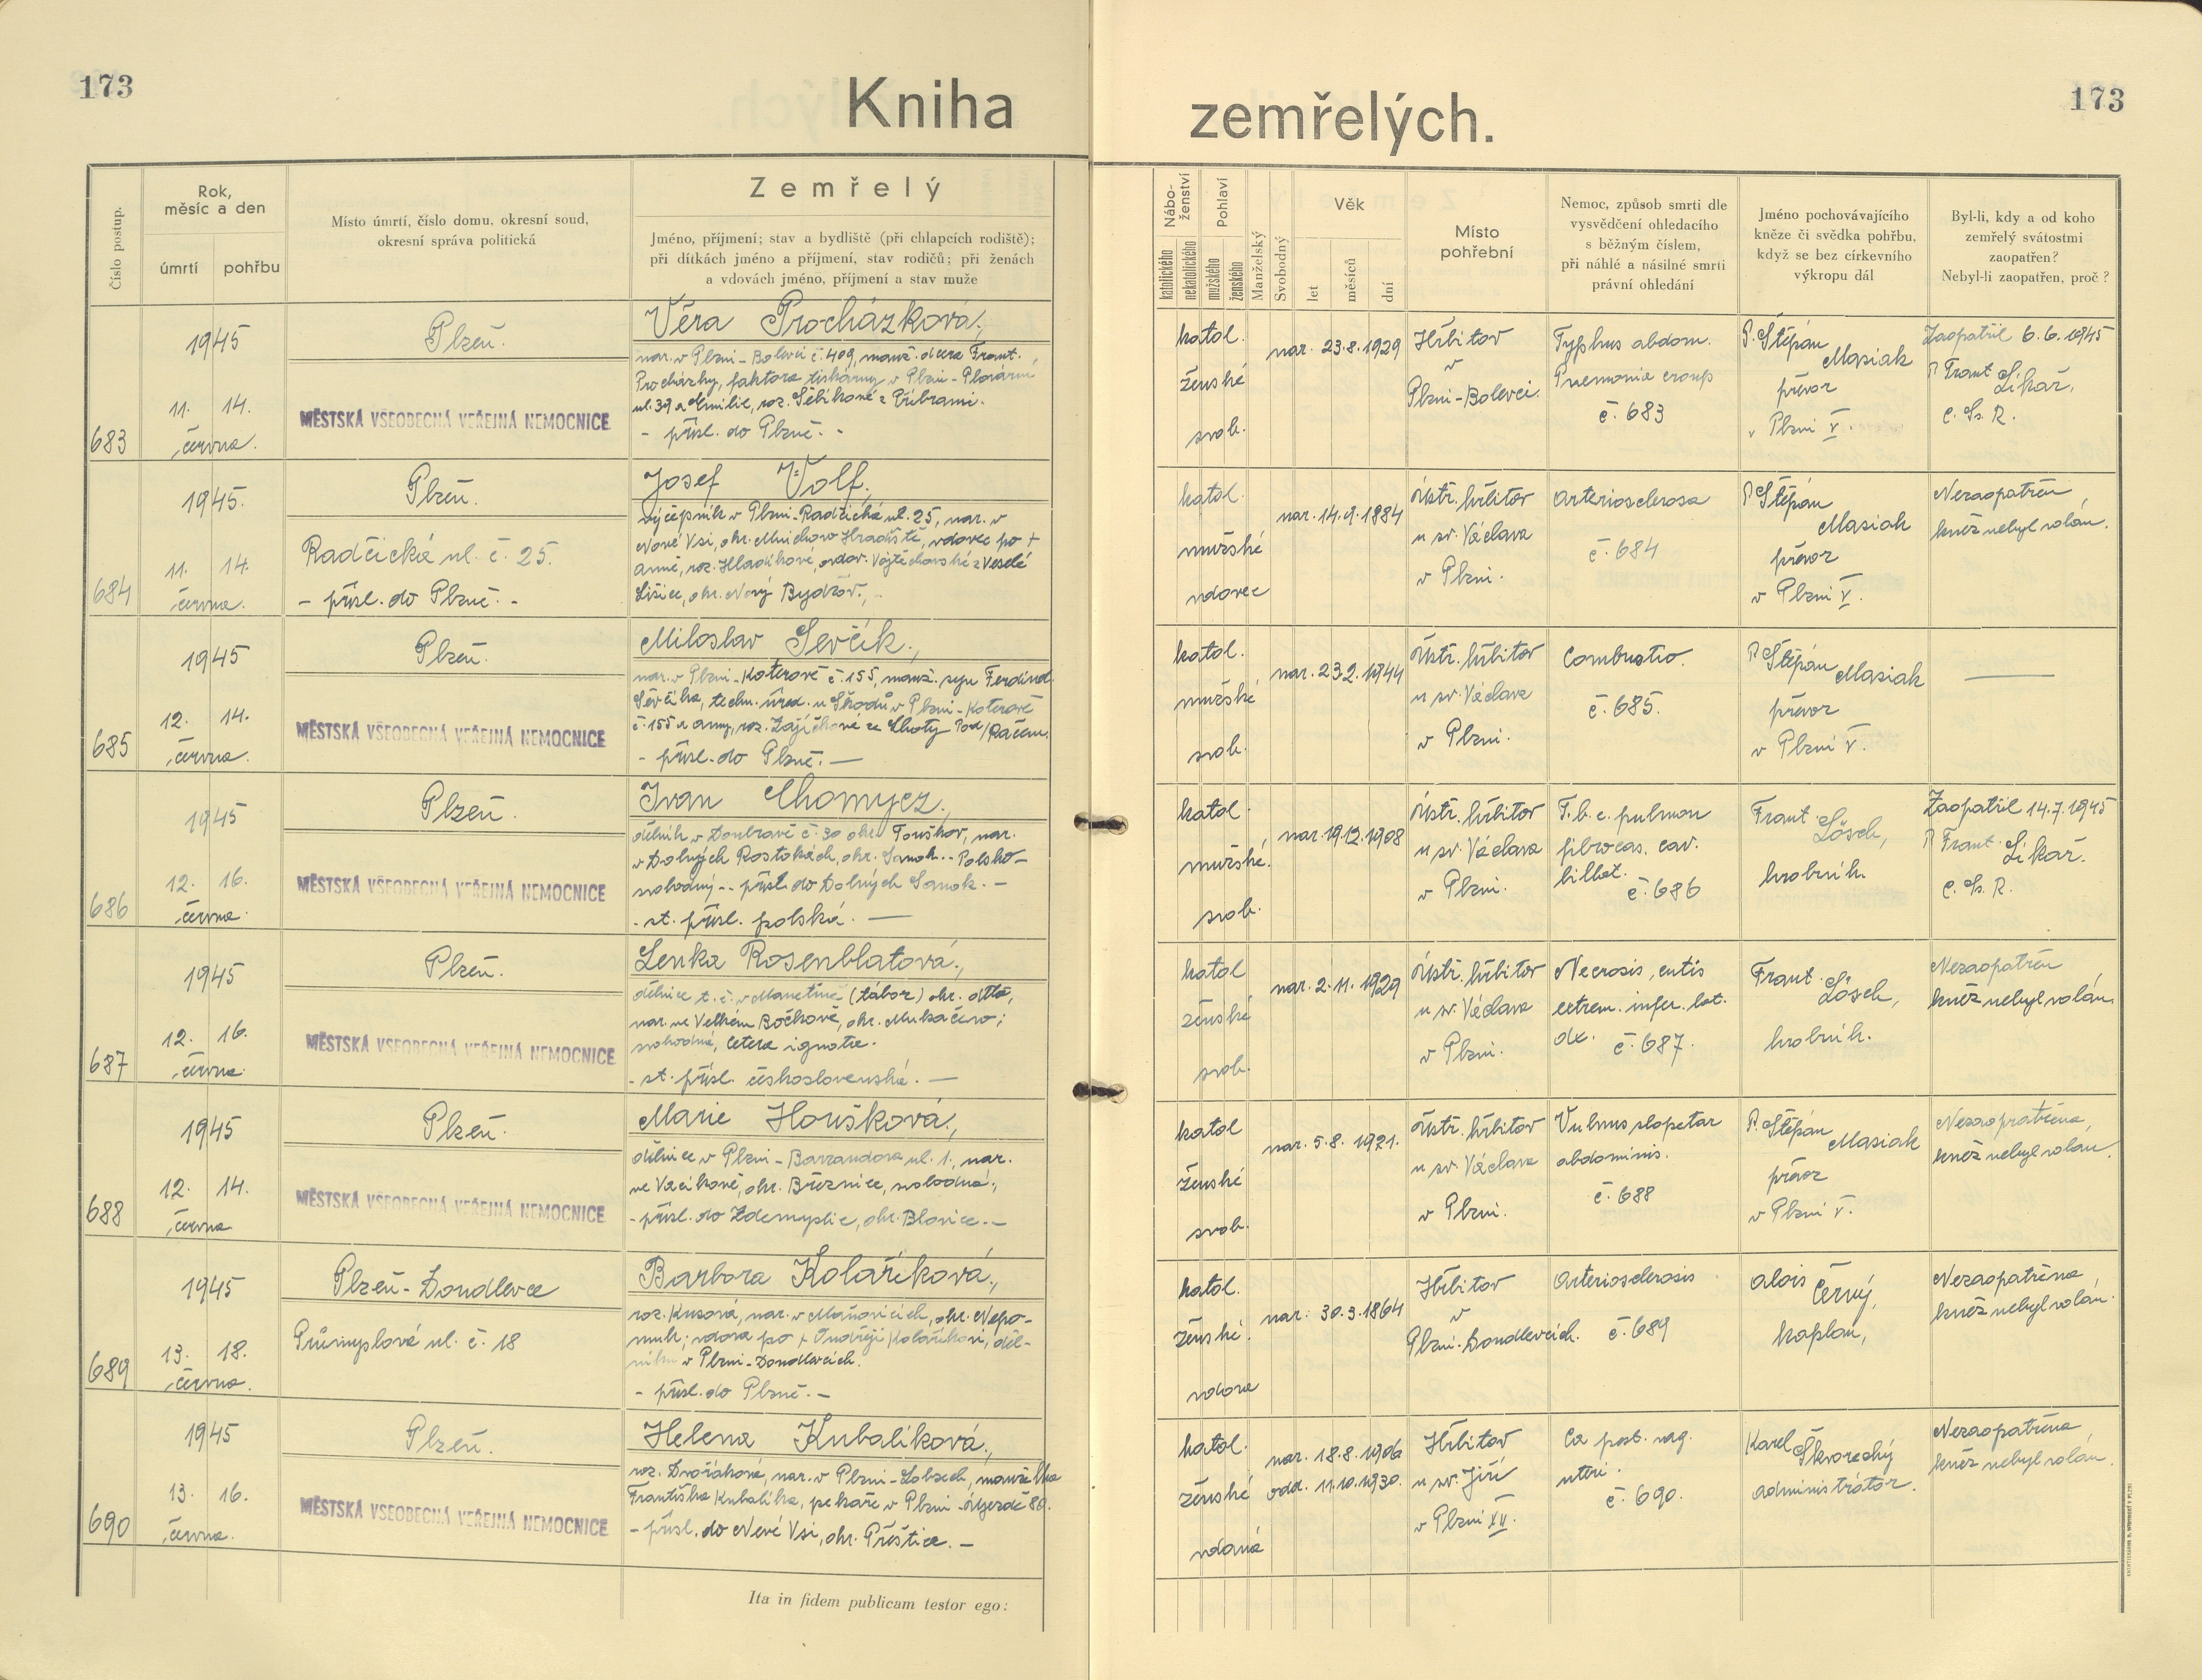 173
Kniha
zemřelých.
173
Číslo postup.
Rok,
měsíc a den
úmrtí
pohřbu
Místo úmrtí, číslo domu, okresní soud,
okresní správa politická
Zemřelý
Jméno, příjmení; stav a bydliště (při chlapcích rodiště);
při dítkách jméno a příjmení, stav rodičů; při ženách
a vdovách jméno, příjmení a stav muže
Nábo-
ženství
katolického
nekatolického
Pohlaví
mužského
ženského
Manželský
Svobodný
Věk
let
měsíců
dní
Místo
pohřební
Nemoc, způsob smrti dle
vysvědčení ohledacího
s běžným číslem,
při náhlé a násilné smrti
právní ohledání
Jméno pochovávajícího
kněze či svědka pohřbu,
když se bez církevního
výkropu dál
Byl-li, kdy a od koho
zemřelý svátostmi
zaopatřen?
Nebyl-li zaopatřen, proč?
683
1945
11. 14.
června.
Plzeň.
MĚSTSKÁ VŠEOBECNÁ VEŘEJNÁ NEMOCNICE
Věra Procházková,
nar. v Plzni-Bolevci č. 409, manž. dcera Frant.
Procházky, faktora tiskárny v Plzni-
ul. 39 a Emilie, roz. Šebíkové z Příbrami.
- přísl. do Plzně. -
katol.
ženské
svob.
nar. 23.8.1929
Hřbitov
v
Plzni-Bolevci.
Typhus abdom.
Pnemonia croup
č. 683
P. Štěpán
Masiak
převor
v Plzni V.
Zaopatřil 6.6.1945
P. Frant. Likař,
C. Ss. R.
684
1945.
11. 14.
června.
Plzeň.
Radčická ul. č. 25.
- přísl. do Plzně. -
Josef Volf,
výčepník v Plzni-Radčická ul. 25, nar. v
Nové Vsi, okr. Mnichovo Hradiště, vdovec po +
Anně, roz. Hladíkové, ovdov. Vojtěchovské z Veselé
Lišice, okr. Nový Bydžov., -
katol.
mužské
vdovec
nar. 14.9.1884
Ústř. hřbitov
u sv. Václava
v Plzni.
Arteriosclerosa
č. 684
P. Štěpán
Masiak
převor
v Plzni V.
Nezaopatřen,
kněz nebyl volán.
685
1945
12. 14.
června.
Plzeň.
MĚSTSKÁ VŠEOBECNÁ VEŘEJNÁ NEMOCNICE
Miloslav Ševčík,
nar. v Plzni-Koterově č. 155, manž. syn Ferdind.
Ševčíka, techn. úřed. u Škodů v Plzni-Koterově
č. 155 a Anny, roz. Zajíčkové ze Lhoty pod/Račem.
- přísl. do Plzně. —
katol.
mužské
svob.
nar. 23.2.1944
Ústř. hřbitov
u sv. Václava
v Plzni.
Combustio.
č. 685.
P. Štěpán Masiak
převor
v Plzni V.
—
686
1945
12. 16.
června.
Plzeň.
MĚSTSKÁ VŠEOBECNÁ VEŘEJNÁ NEMOCNICE
Ivan Chomycz,
dělník v Doubravě č. 30 okr. Touškov, nar.
v Dolných Rostokách, okr. Sanok - Polsko -
svobodný - - přísl. do Dolných Sanok. -
- st. přísl. polská. —
katol.
mužské.
svob.
nar. 19.12.1908
Ústř. hřbitov
u sv. Václava
v Plzni.
T.b.c. pulmon
fibrocas. cav.
bilat.
č. 686
Frant. Lösch,
hrobník.
Zaopatřil 14.7.1945
P. Frant. Likař.
C. Ss. R.
687
1945
12. 16.
června.
Plzeň.
MĚSTSKÁ VŠEOBECNÁ VEŘEJNÁ NEMOCNICE
Lenka Rosenblatová,
dělnice t. č. v Manetíně (tábor) okr. dtto,
nar. ve Velkém Bočkově, okr. Mukačevo;
svobodná, cetera ignotie.
- st. přísl. československá. —
katol
ženské
svob.
nar. 2.11.1929
Ústř. hřbitov
u sv. Václava
v Plzni.
Necrosis, cutis
extrem. infer. lat.
dx. č. 687.
Frant. Lösch,
hrobník.
Nezaopatřen
kněz nebyl volán.
688
1945
12. 14.
června
Plzeň.
MĚSTSKÁ VŠEOBECNÁ VEŘEJNÁ NEMOCNICE
Marie Houšková,
dělnice v Plzni-Barrandova ul. 1, nar.
ve Vacíkově, okr. Březnice, svobodná,
- přísl. do Zdemyslic, okr. Blovice. -
katol
ženské
svob.
nar. 5.8.1921.
Ústř. hřbitov
u sv. Václava
v Plzni.
Vulnus slopetar
abdominis.
č. 688
P. Štěpán Masiak
převor
v Plzni V.
Nezaopatřena,
kněz nebyl volán.
689
1945
13. 18.
června.
Plzeň-Doudlevce
Průmyslová ul. č. 18
Barbora Kolaříková,
roz. Kusová, nar. v Maňovicích, okr. Nepo-
muk; vdova po + Ondřeji Kolaříkovi, děl-
níku v Plzni-Doudlevcích.
- přísl. do Plzně. -
katol.
ženské.
vdova
nar. 30.3.1864
Hřbitov
v
Plzni-Doudlevcích.
Arteriosclerosis
č. 689
Alois Černý,
kaplan,
Nezaopatřena
kněz nebyl volán.
690
1945
13. 16.
června.
Plzeň.
MĚSTSKÁ VŠEOBECNÁ VEŘEJNÁ NEMOCNICE
Helena Kubalíková,
roz. Dvořáková, nar. v Plzni-Lobzech, manželka
Františka Kubalíka, pekaře v Plzni-Újezdě 80.
- přísl. do Nové Vsi, okr. Přeštice. -
katol.
ženské
vdaná
nar. 18.8.1906
odd. 11.10.1930.
Hřbitov
u sv. Jiří
v Plzni XII.
Ca port. vag.
uteri.
č. 690.
Karel Škvorecký
administrátor.
Nezaopatřena
kněz nebyl volán.
Ita in fidem publicam testor ego: